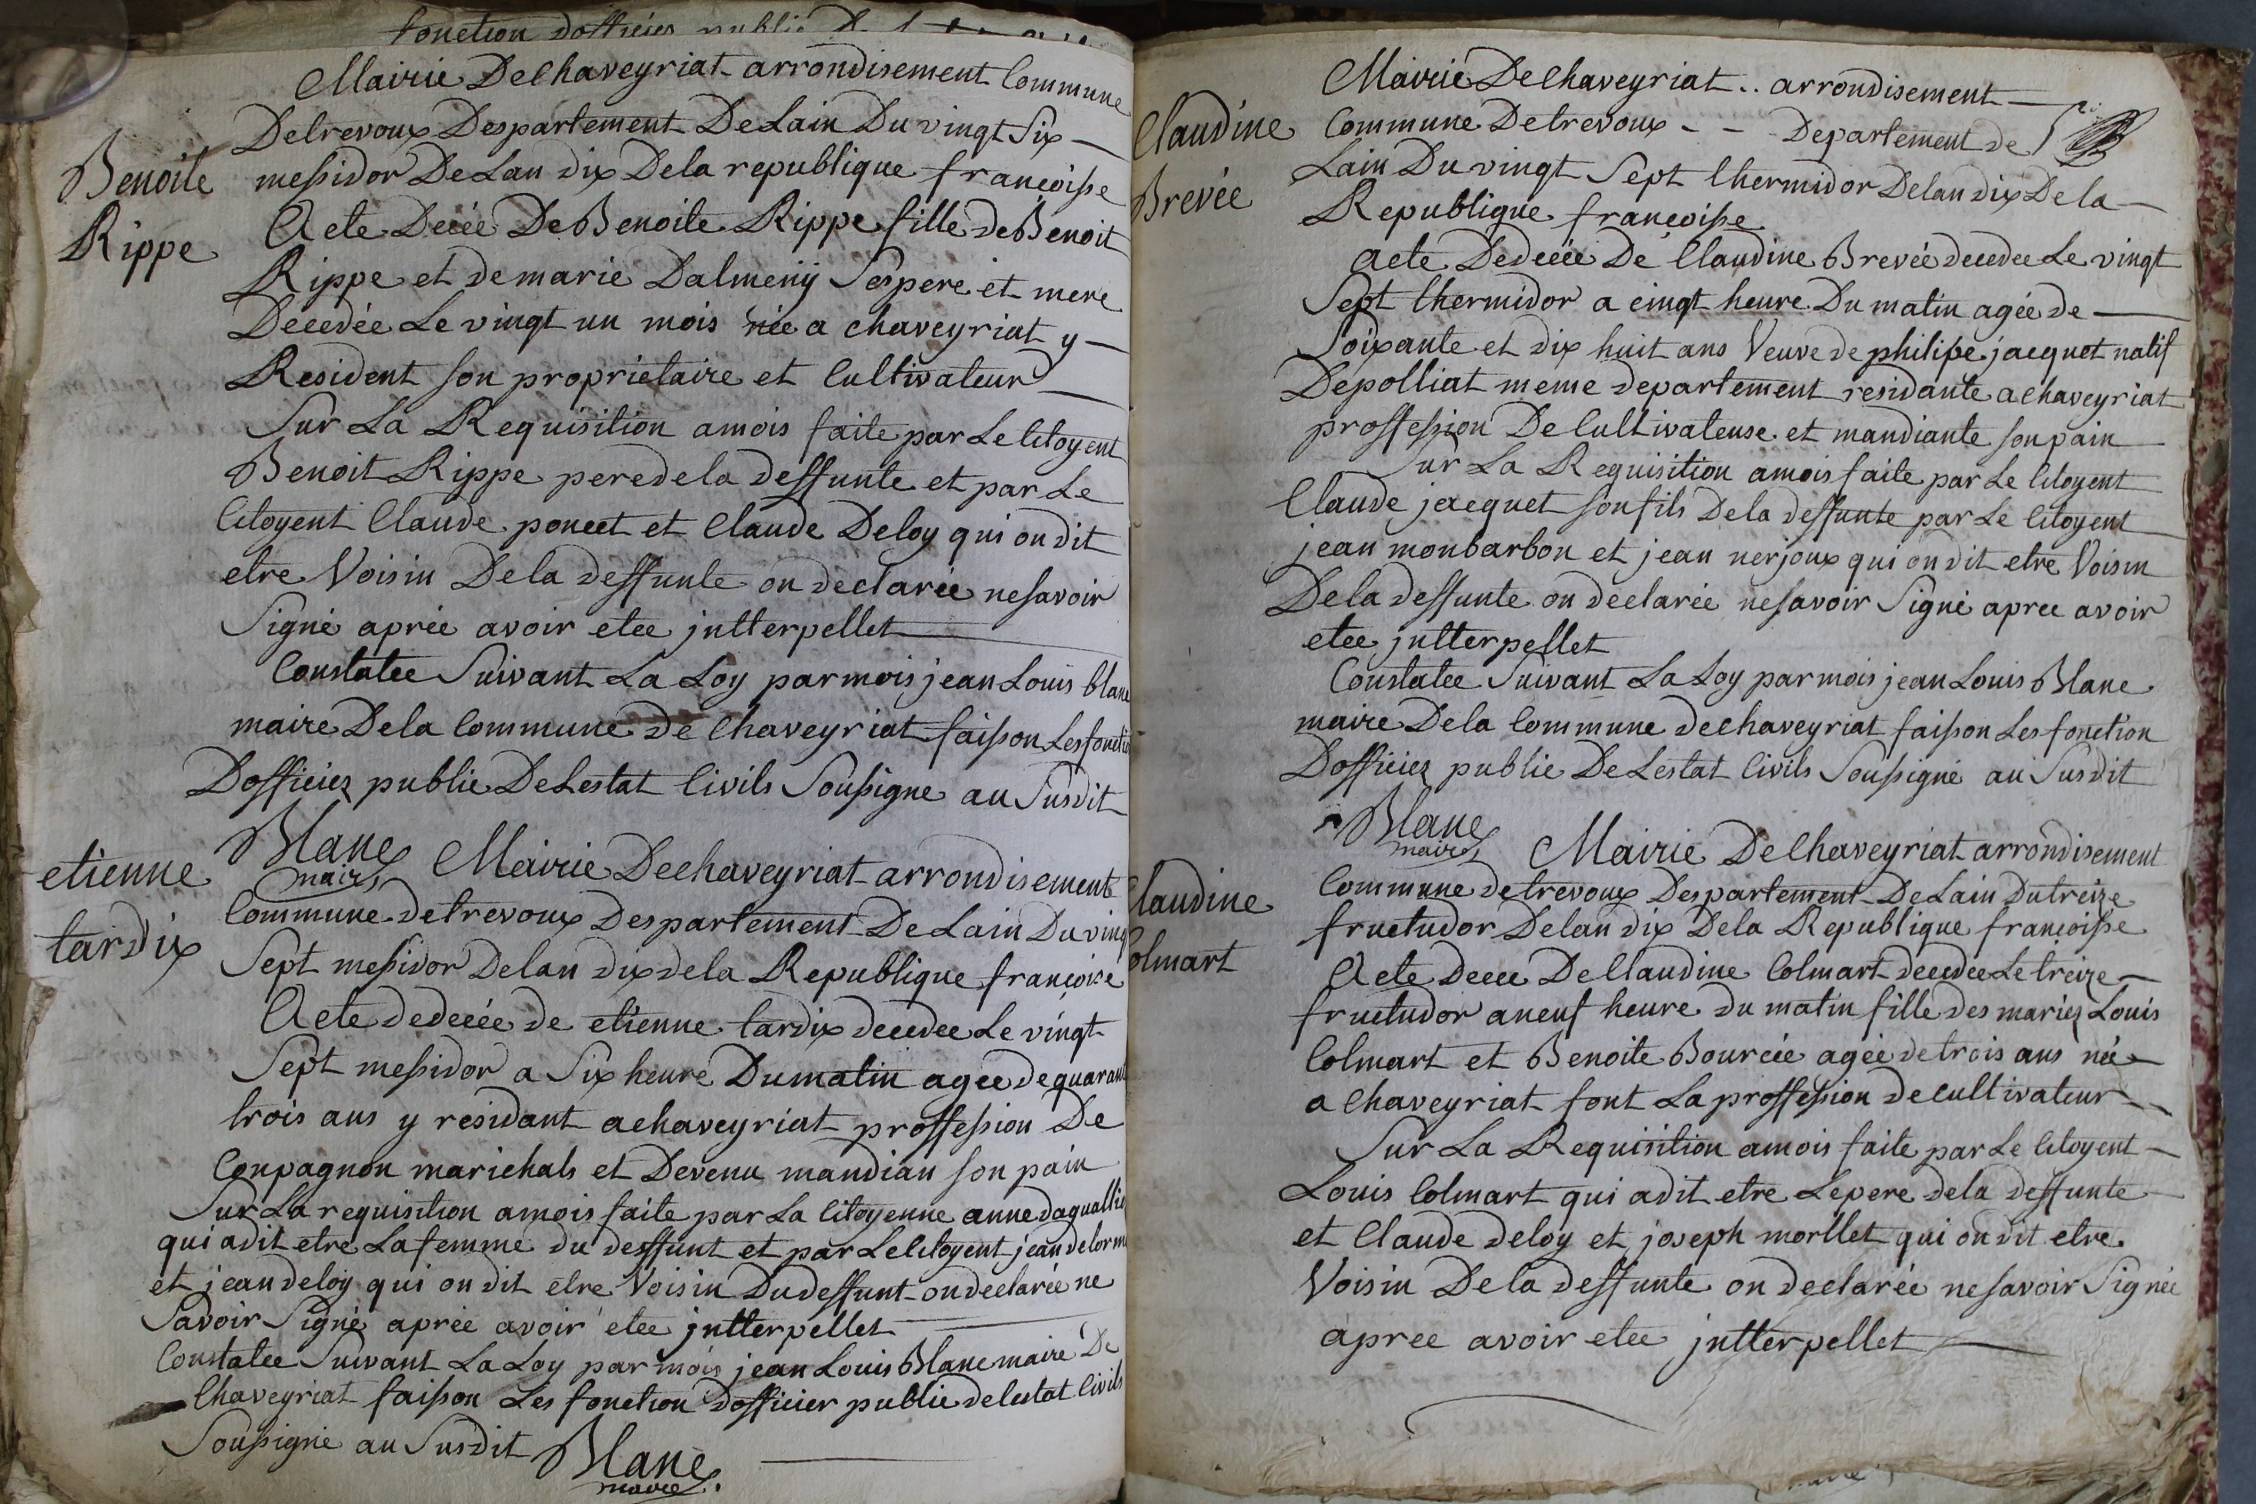 fonction dofficiés public D
Mairie Dechaveyriat arrondisement Commune
Detrevoux Despartement DeLain Du vingt Six
Benoite
messidor DeLan dix Dela republique francoisse
Acte Decée De Benoite Rippe fille de Benoit
Rippe
Rippe et de marie Dalmeny Ses pere et mere
Decedée Le vingt un mois née a chaveyriat y
Resident son proprietaire et Cultivateur
Sur La Requisition amois faite par Le Citoyent
Benoit Rippe pere dela deffunte et par Le
Citoyent Claude poncet et Claude Deloy qui on dit
etre Voisin Dela deffunte on declarée ne savoir
Signé aprée avoir etee jntterpellet
Constatee Suivant La Loy par mois jean Louis blanc
maire Dela Commune De Chaveyriat faisson Les foncti
Dofficiez public DeLestat Civils Soussigne au Susdit
Blanc
maire
etienne
Mairie Dechaveyriat arrondisement
tardix
Commune detrevoux Despartement DeLain Du ving
Sept messidor Delan dix dela Republique francoise
Acte dedecée de etienne tardix decedee Le vingt
Sept messidor a Six heure Dumatin agee de quarant
trois ans y residant achaveyriat proffession De
Conpagnon marichals et Devenu mandian son pain
Sur La requisition amois faite par La Citoyenne anne daquallie
qui adit etre La femme du deffunt et par Le Citoyent jean delorm
et jean deloy qui on dit etre Voisin Dudeffunt on declarée ne
Savoir Signé aprée avoir etee jntterpellet
Constatee Suivant La Loy par mois jean Louis Blanc maire De
Chaveyriat faisson Les fonction dofficier public delestat Civils
Soussigné au Susdit
Blanc
maire
Mairie Dechaveyriat .. arrondisement
Claudine
Commune Detrevoux - - Departement de
Brevée
Lain Du vingt Sept thermidor Delan dix Dela
Republique francoisse
Acte Dedecée De Claudine Brevée decedee Le vingt
Sept thermidor a cinqt heure Du matin agée de
Soixante et dix huit ans Veuve de philipe jacquet natif
Depolliat meme departement residante achaveyriat
proffession De Cultivateuse et mandiante son pain
Sur La Requisition amois faite par Le Citoyent
Claude jacquet son fils Dela deffunte par Le Citoyent
jean monbarbon et jean nerjoux qui on dit etre Voisin
Dela deffunte on declarée ne savoir Signé apree avoir
etee jntterpellet
Constatee Suivant La Loy par mois jean Louis Blanc
maire Dela Commune dechaveyriat faisson Les fonction
Dofficiez public DeLestat Civils Soussigné au Susdit
Blanc
maire
Mairie Dechaveyriat arrondisement
Claudine
Commune detrevoux Despartement DeLain Du treize
Colmart
fructudor Delan dix Dela Republique francoisse
Acte decee De Claudine Colmart decedee Le treize
fructudor aneuf heure du matin fille des mariez Louis
Colmart et Benoite Bourcée agée de trois ans née
a Chaveyriat font La proffession de cultivateur
Sur La Requisition amois faite par Le Citoyent
Louis Colmart qui adit etre Le pere dela deffunte
et Claude deloy et joseph morllet qui on dit etre
Voisin Dela deffunte on declarée ne savoir Signée
apree avoir etee jntterpellet